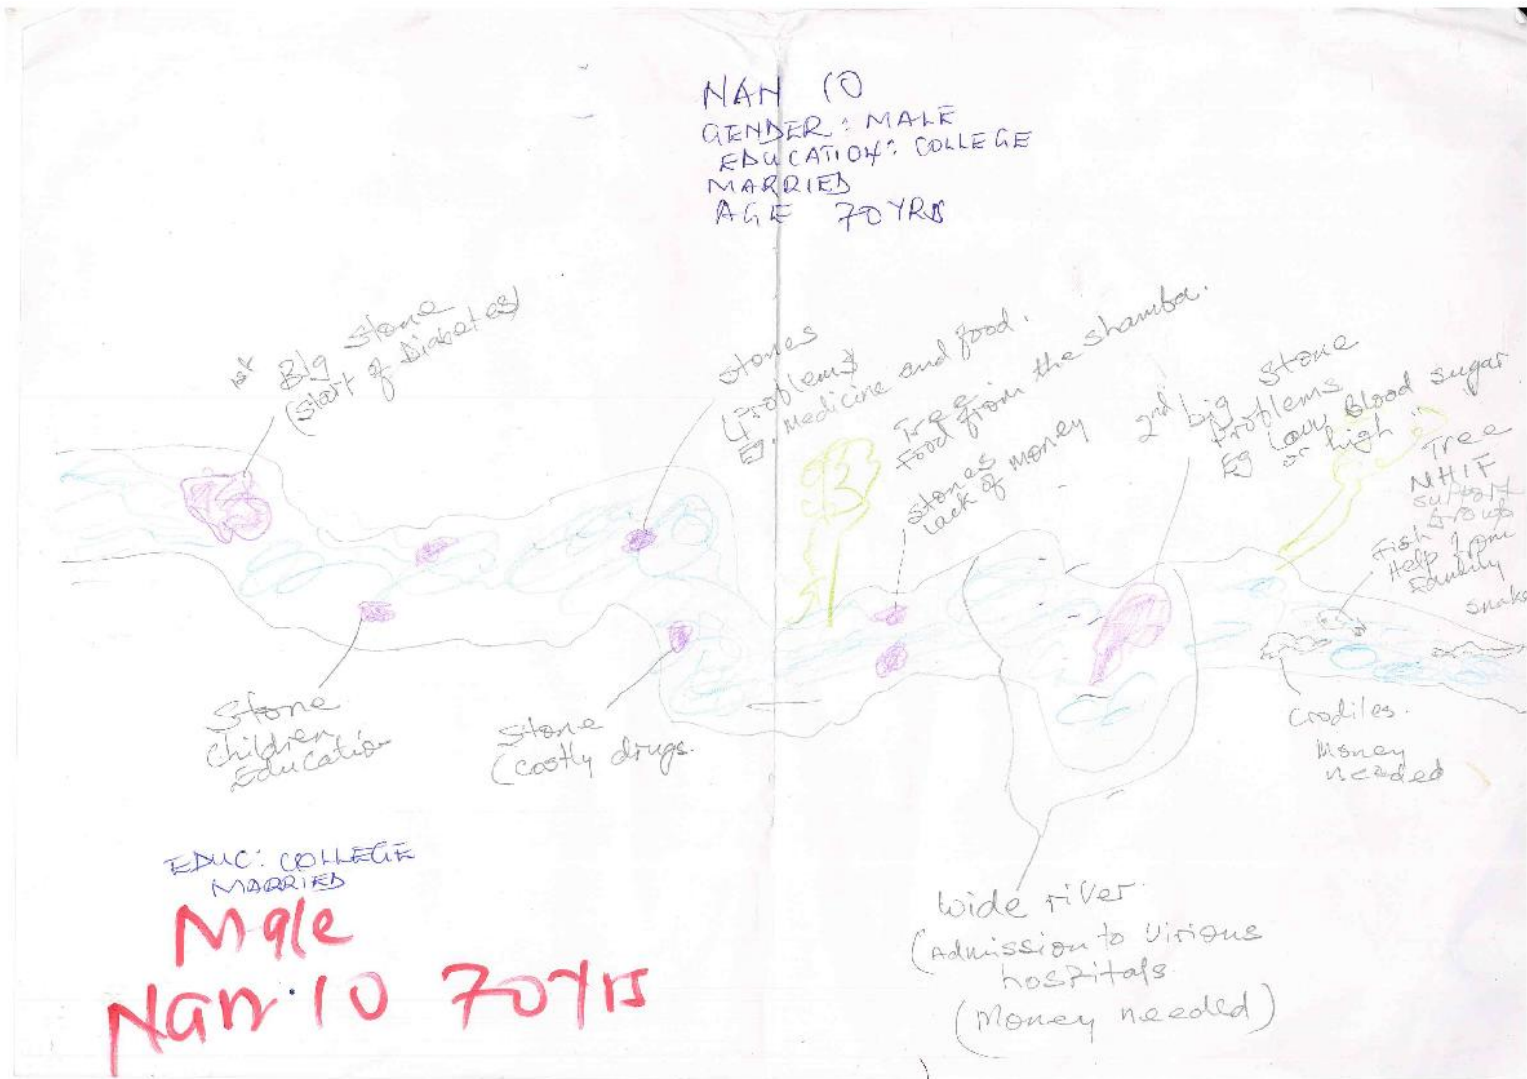 NAN 10
GENDER: MALE
EDUCATION: COLLEGE
MARRIED
AGE 70YRS
1st Big Stone
(Start of Diabetes)
Stones
(Problems
Eg. Medicine and food.
Tree
Food from the shamba.
Stones
Lack of Money
2nd big Stone
Problems
Eg Low Blood sugar
or high
Tree
NHIF
Support
Group
Fish
Help from
Family
Snake
Stone
Children
Education
Stone
(costly drugs.
Crodiles.
Money
needed
Wide river
(Admission to Virious
hospitals
(Money needed)
EDUC: COLLEGE
MARRIED
Male
Nan 10 70YRS